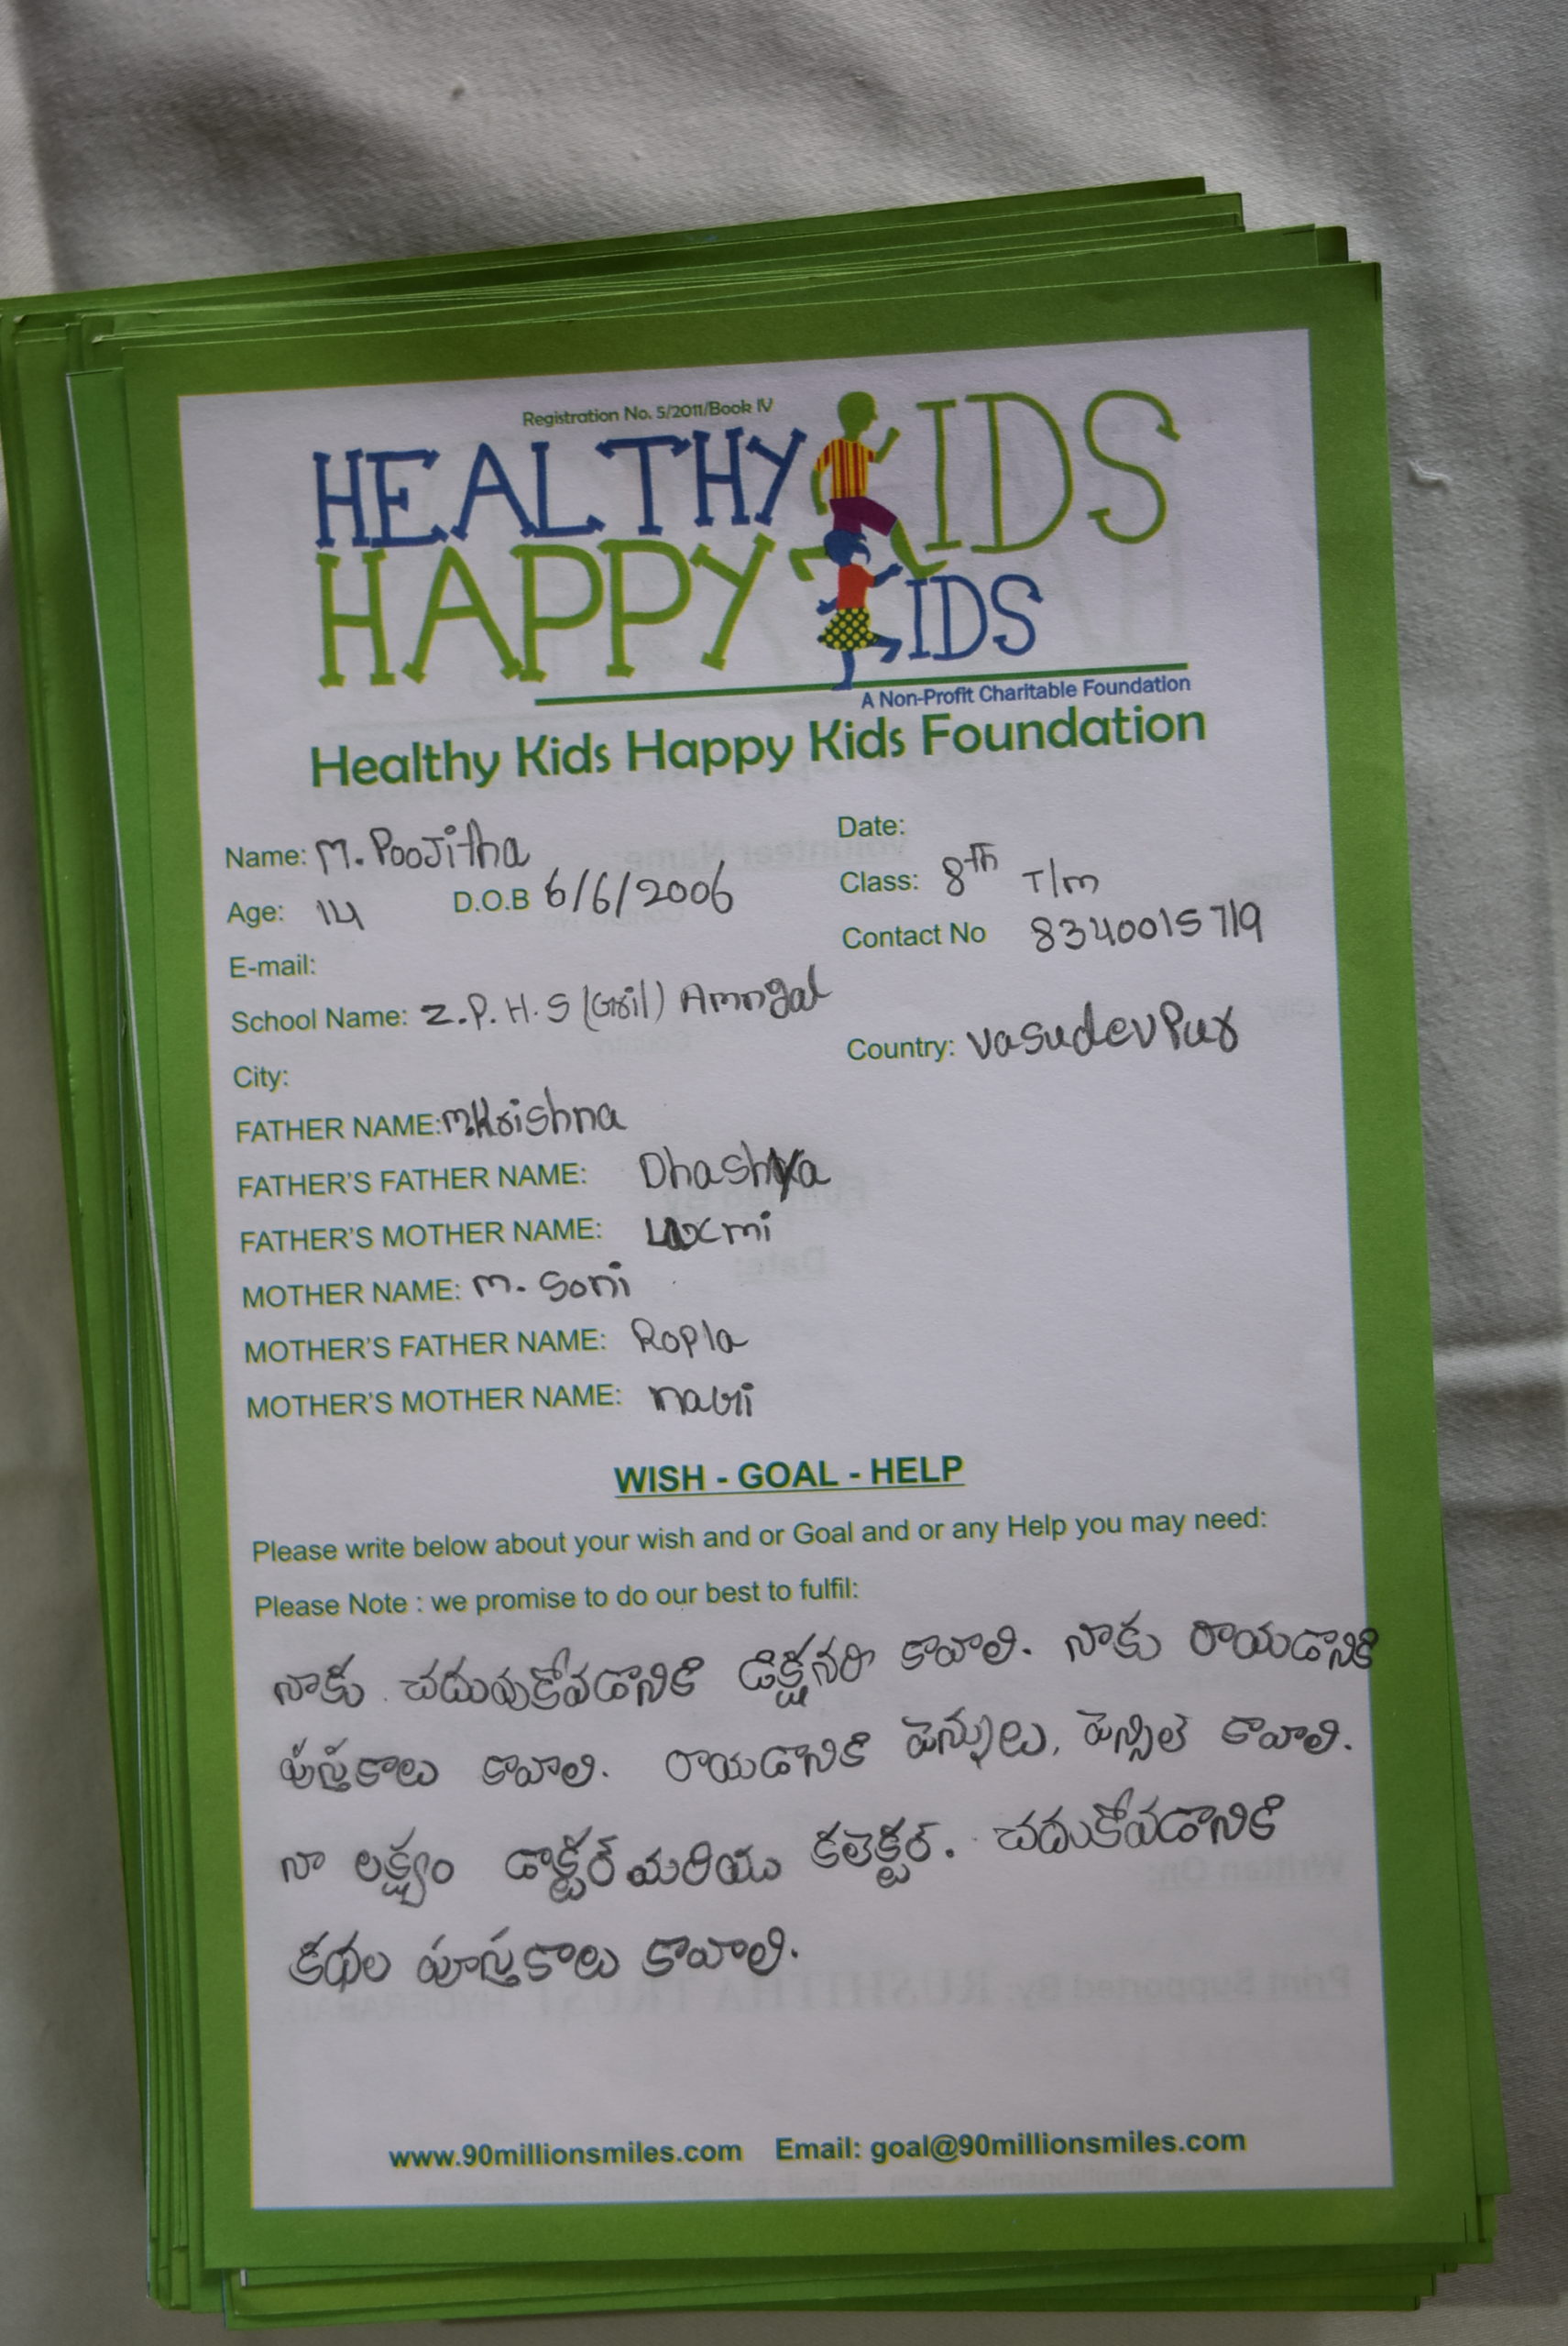 Registration No. 5/2011/Book IV
HEALTHY KIDS
HAPPY KIDS
A Non-Profit Charitable Foundation
Healthy Kids Happy Kids Foundation
Name: M. Poojitha Date:
Age: 14 D.O.B 6/6/2006 Class: 8th T/m
E-mail: Contact No 8340015719
School Name: Z.P.H.S (Gril) Amngal
City: Country: vasudevpur
FATHER NAME: m.Krishna
FATHER'S FATHER NAME: Dhashya
FATHER'S MOTHER NAME: Laxmi
MOTHER NAME: m. Soni
MOTHER'S FATHER NAME: Ropla
MOTHER'S MOTHER NAME:
WISH - GOAL - HELP
Please write below about your wish and or Goal and or any Help you may need:
Please Note : we promise to do our best to fulfil:
నాకు చదువుకోవడానికి డిక్షనరి కావాలి. నాకు రాయడానికి
పుస్తకాలు కావాలి. రాయడానికి పెన్నులు, పెన్సిల్ కావాలి.
నా లక్ష్యం డాక్టర్ మరియు కలెక్టర్. చదుకోవడానికి
కథల పూస్తకాలు కావాలి.
www.90millionsmiles.com Email: goal@90millionsmiles.com